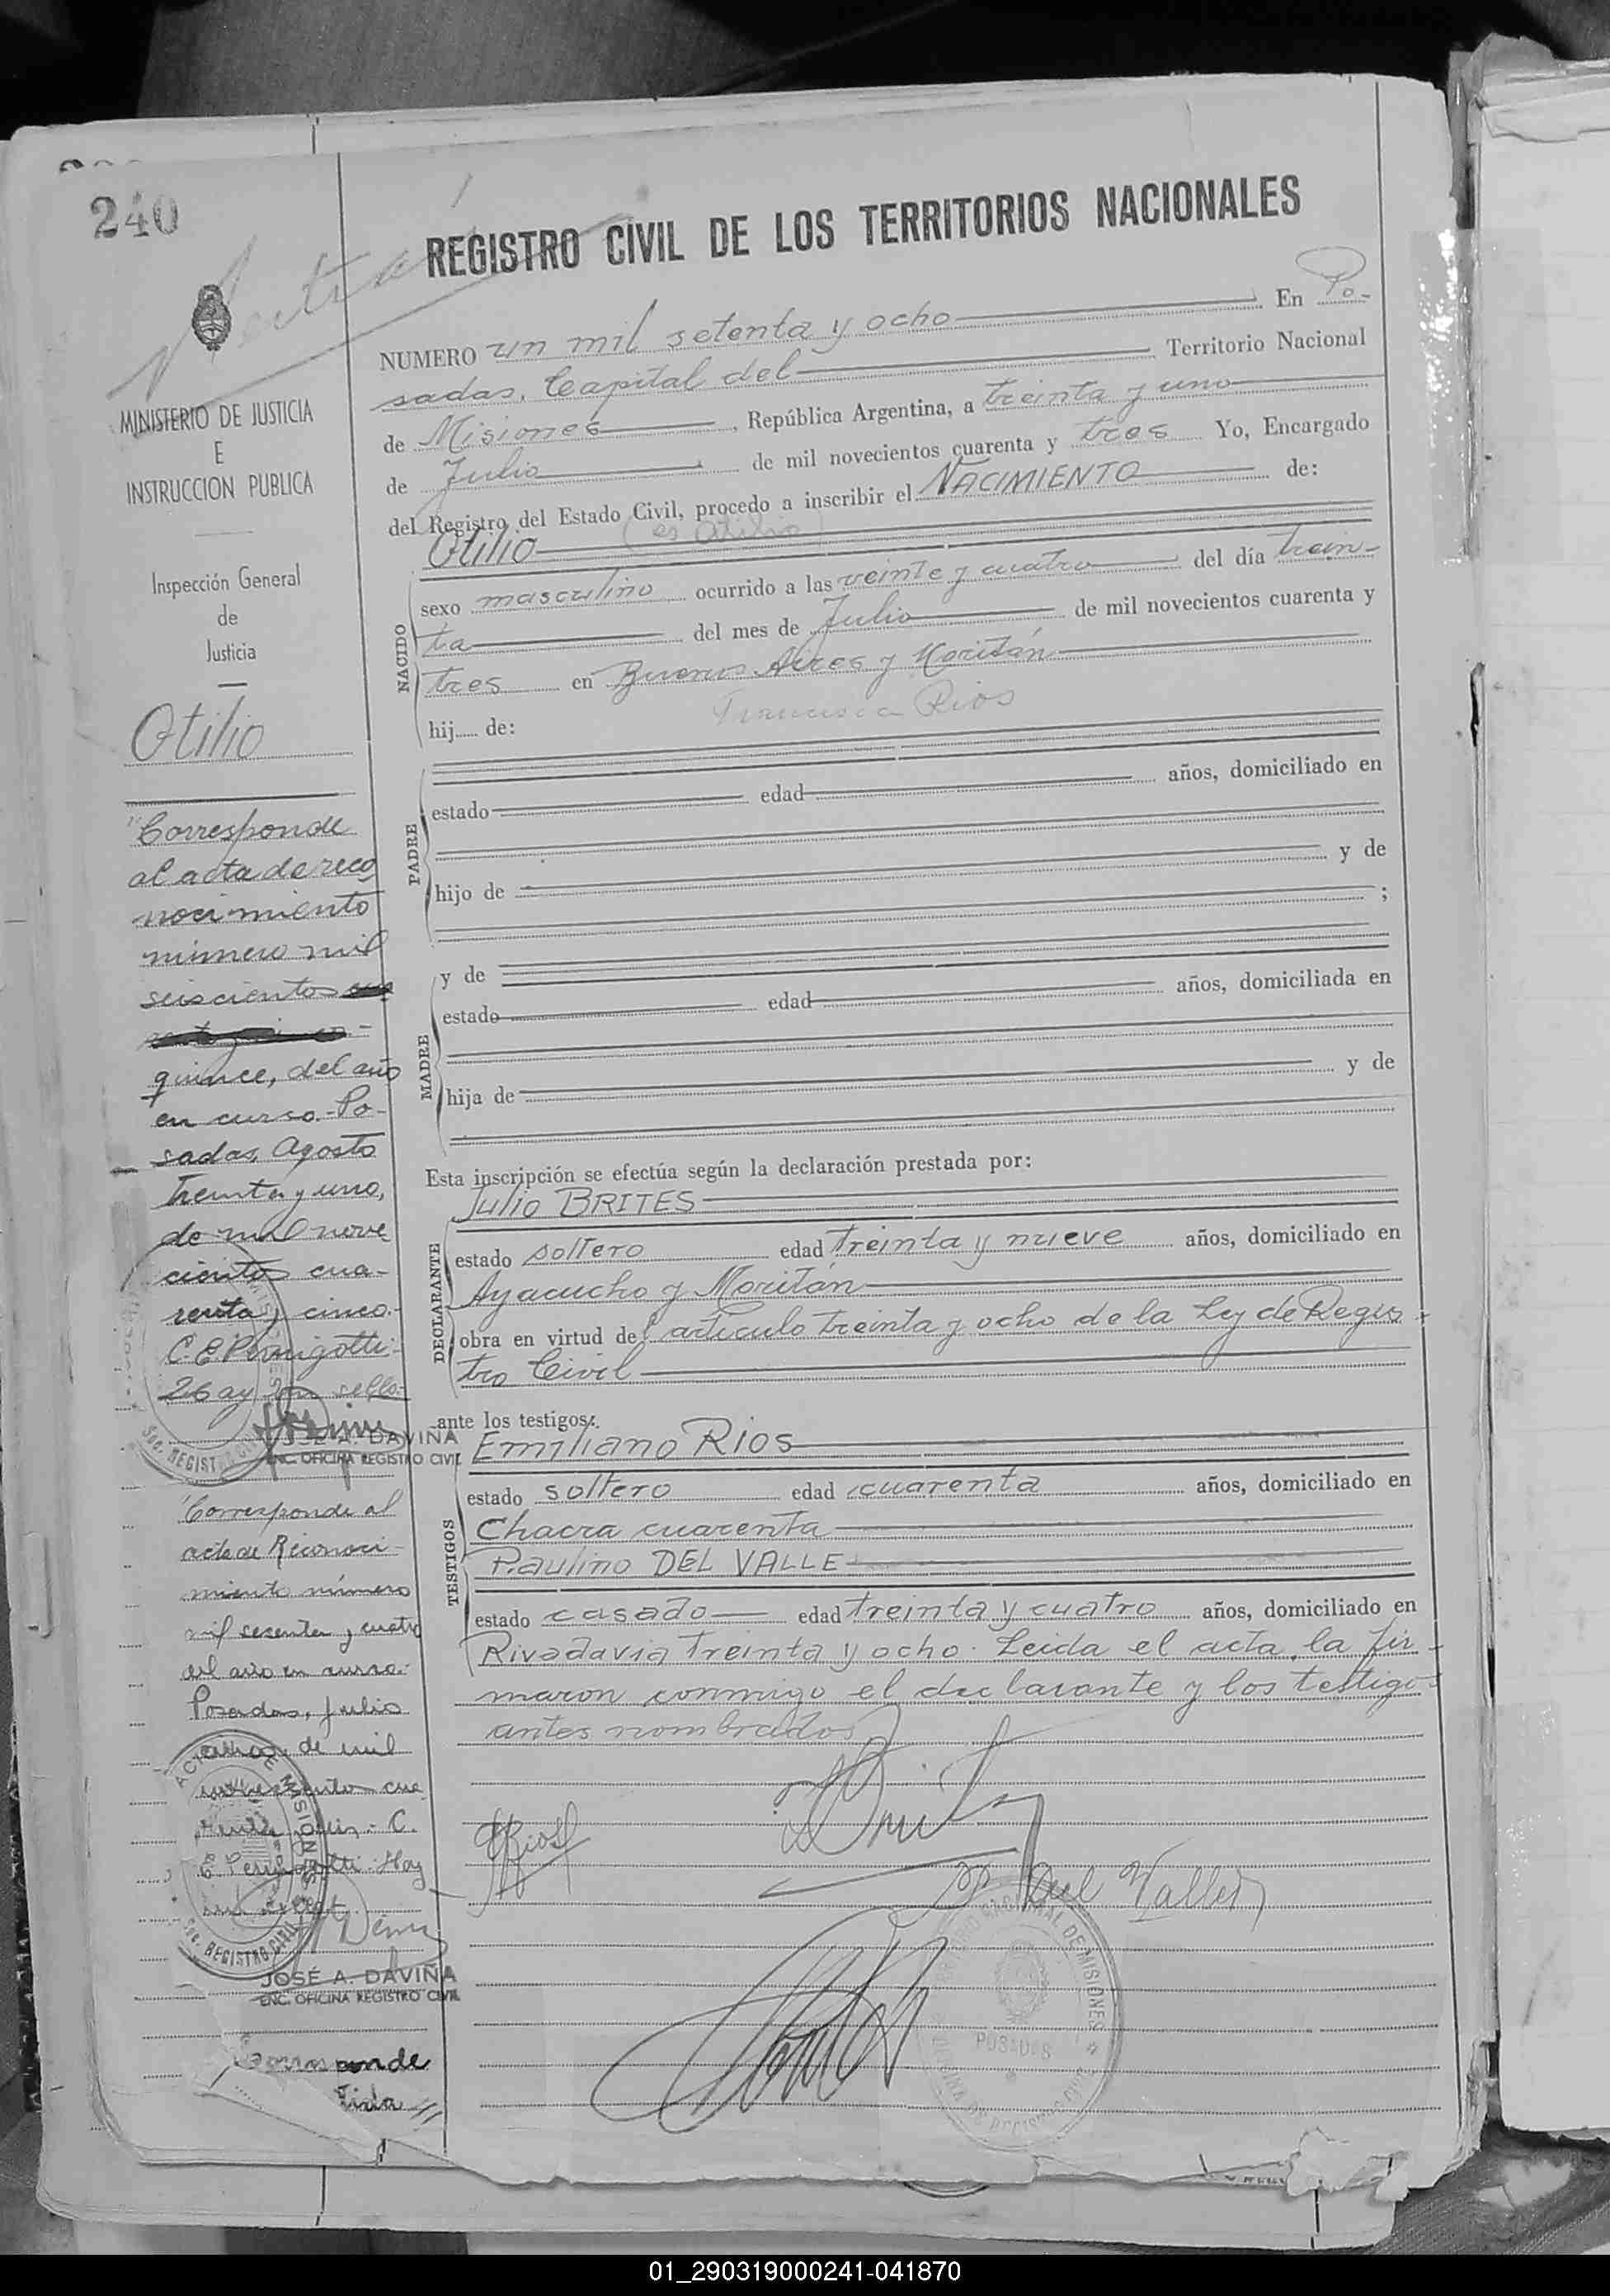 240
REGISTRO CIVIL DE LOS TERRITORIOS NACIONALES
MINISTERIO DE JUSTICIA
E
INSTRUCCION PUBLICA
Inspección General
de
Justicia
Otilio
"Corresponde
al acta de reco
nocimiento
número mil
seiscientos
quince, del año
en curso.- Po-
sadas, Agosto
Treinta y uno,
de mil nove
cientos cua-
renta y cinco.-
sello.-
JOSÉ A. DAVIÑA
ENC. OFICINA REGISTRO CIVIL
"Corresponde al
acta de Reconoci-
miento número
mil sesenta y cuatro
del año en curso.-
Posadas, Julio
de mil
cua
C.
Hay
JOSÉ A. DAVIÑA
ENC. OFICINA REGISTRO CIVIL
Corresponde
NUMERO un mil setenta y ocho En Po-
sadas, Capital del Territorio Nacional
de Misiones, República Argentina, a treinta y uno
de Julio de mil novecientos cuarenta y tres Yo, Encargado
del Registro del Estado Civil, procedo a inscribir el NACIMIENTO de:
Otilio (es Otilio)
NACIDO
sexo masculino ocurrido a las veinte y cuatro del día trein-
ta del mes de Julio de mil novecientos cuarenta y
tres en Buenos Aires y Moritán
hij de: Francisca Rios
PADRE
estado edad años, domiciliado en
hijo de y de
;
MADRE
y de
estado edad años, domiciliada en
hija de y de
Esta inscripción se efectúa según la declaración prestada por:
DECLARANTE
Julio BRITES
estado soltero edad treinta y nueve años, domiciliado en
Ayacucho y Moritán
obra en virtud del artículo treinta y ocho de la Ley de Regis-
tro Civil
ante los testigos:
TESTIGOS
Emiliano Rios
estado soltero edad cuarenta años, domiciliado en
Chacra cuarenta
Paulino DEL VALLE
estado casado edad treinta y cuatro años, domiciliado en
Rivadavia treinta y ocho. Leida el acta, la fir-
maron conmigo el declarante y los testigos
antes nombrados
ERios
P del Valle
POSADAS
01_290319000241-041870